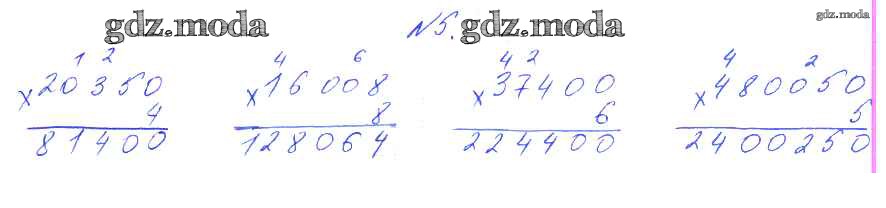 gdz.moda №5. gdz.moda gdz.moda
1 2 4 6 4 2 4 2
×20350 ×16008 ×37400 ×480050
4 8 6 5
81400 128064 224400 2400250